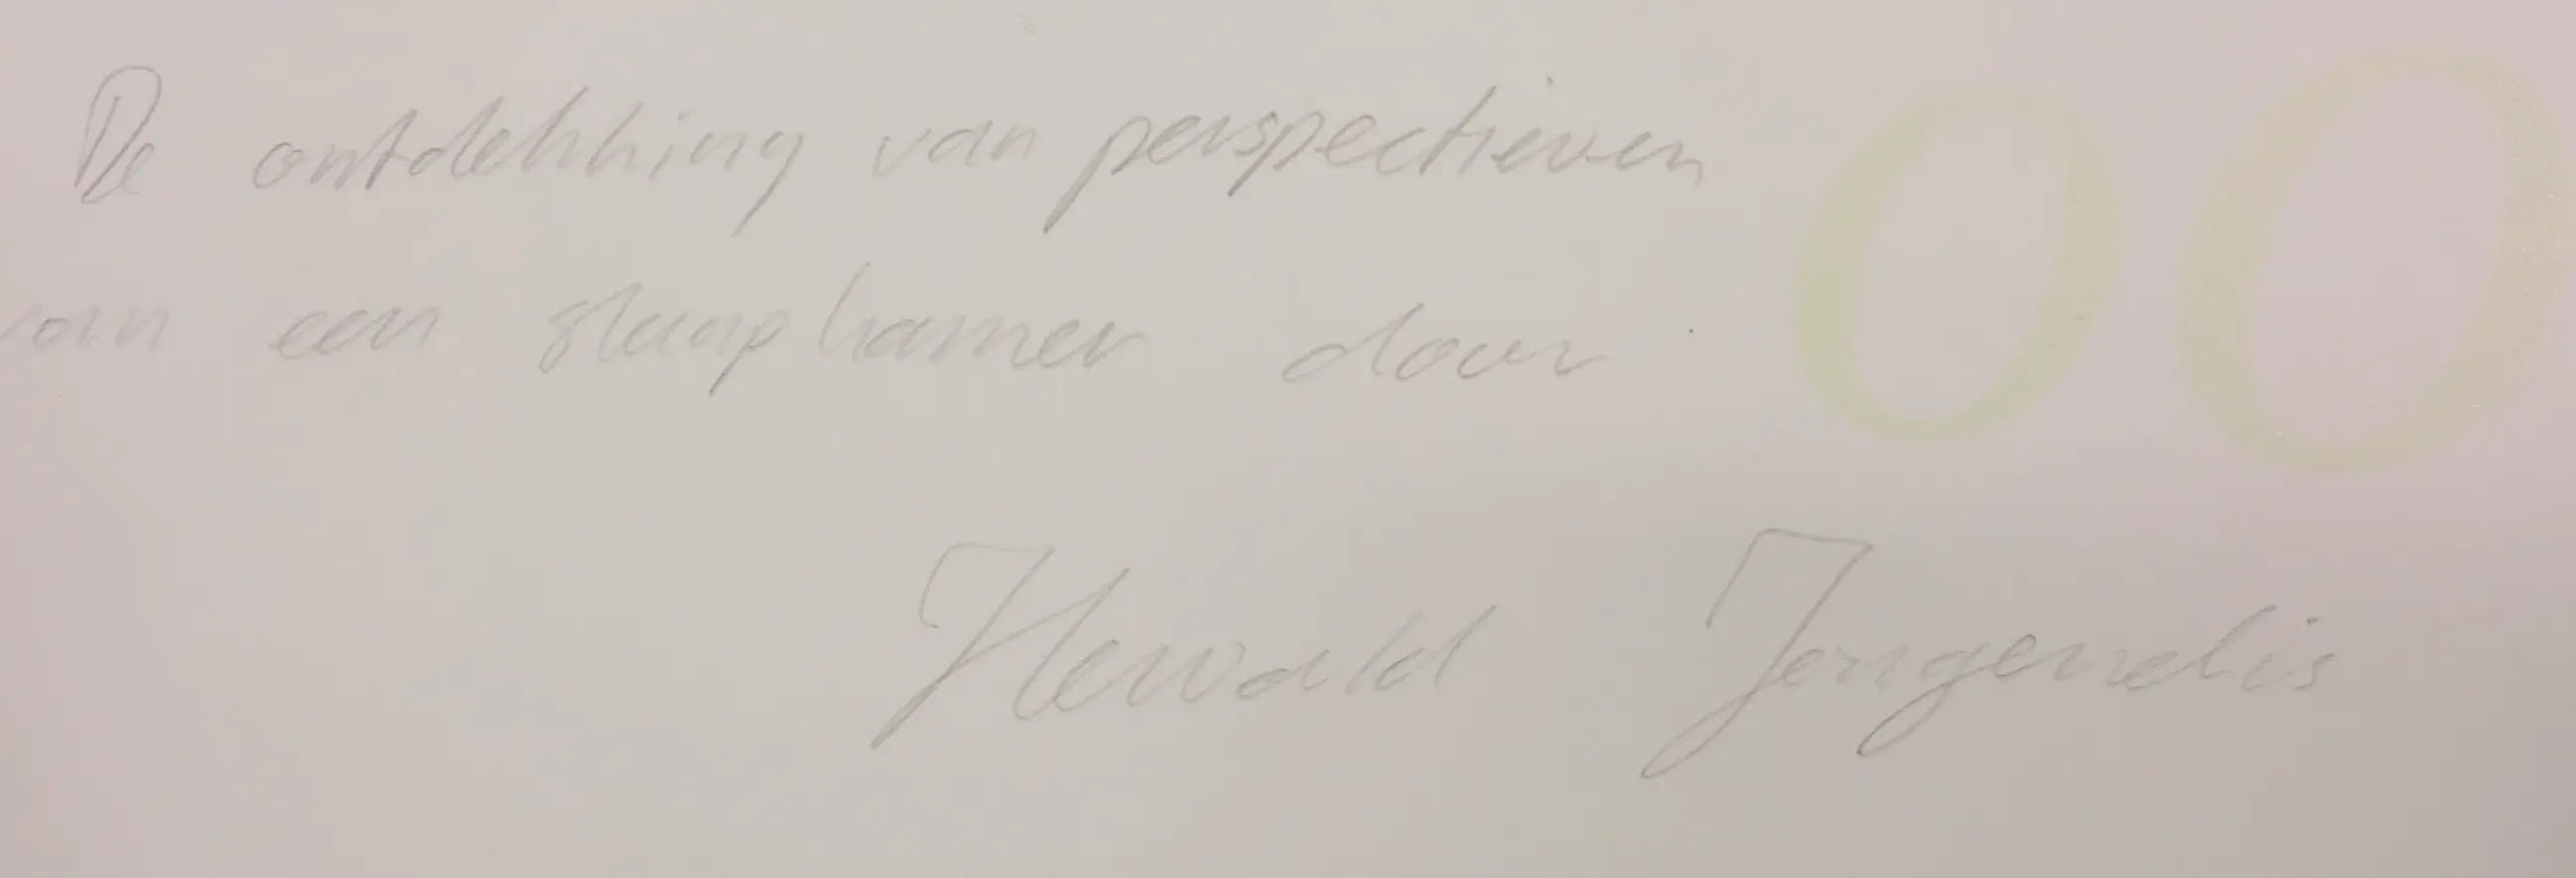 De ontdekking van perspectieven
van een slaapkamer door
Hewald Jongenelis